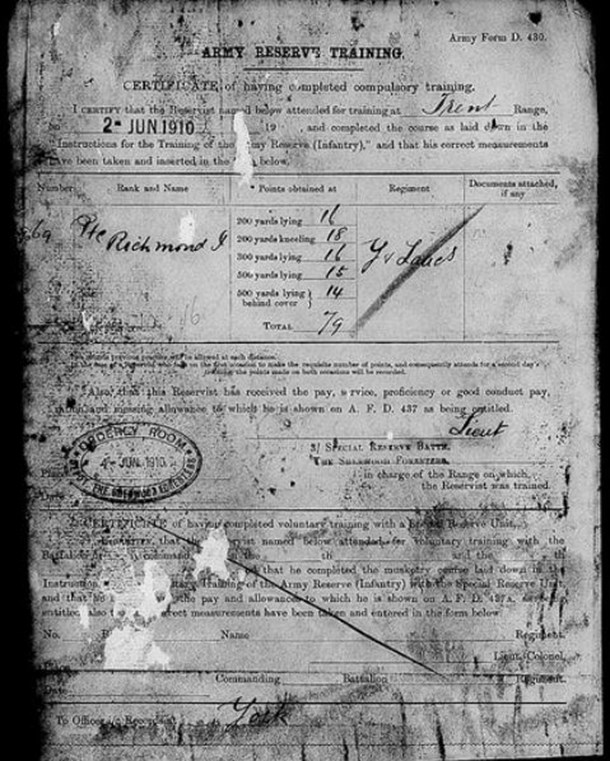 Army Form D. 430.
ARMY RESERVE TRAINING.
CERTIFICATE of having completed compulsory training.
I CERTIFY that the Reservist named below attended for training at Trent Range,
2- JUN 1910 19 , and completed the course as laid down in the
Instructions for the Training of the Army Reserve (Infantry)," and that his correct measurements
have been taken and inserted in the below.
Number Rank and Name Points obtained at Regiment Documents attached, if any
69 Pte Richmond J Y & Lancs
200 yards lying 16
200 yards kneeling 18
300 yards lying 16
500 yards lying 15
500 yards lying behind cover 14
TOTAL 79
previous practice will be allowed at each distance.
of a Reservist who fails on the first occasion to make the requisite number of points, and consequently attends for a second day's
training, the points made on both occasions will be recorded.
Also, that this Reservist has received the pay, service, proficiency or good conduct pay,
ration and messing allowance to which he is shown on A. F. D. 437 as being entitled.
Lieut
3/ SPECIAL RESERVE BATTN.
THE SHERWOOD FORESTERS.
in charge of the Range on which
the Reservist was trained.
ORDERLY ROOM
4- JUN 1910
DEPOT THE SHERWOOD FORESTERS
Place
Date
CERTIFICATE of having completed voluntary training with a Special Reserve Unit.
that the named below attended for voluntary training with the
Battalion command, the th and the th
that he completed the musketry course laid down in the
Instruction Training of the Army Reserve (Infantry) with the Special Reserve Unit,
and that he the pay and allowances to which he is shown on A. F. D. 437a. as being
entitled, also correct measurements have been taken and entered in the form below:
No. Name Regiment.
Lieut.-Colonel,
Place
Commanding Battalion Regiment.
Date
To Officer i/c Records at York